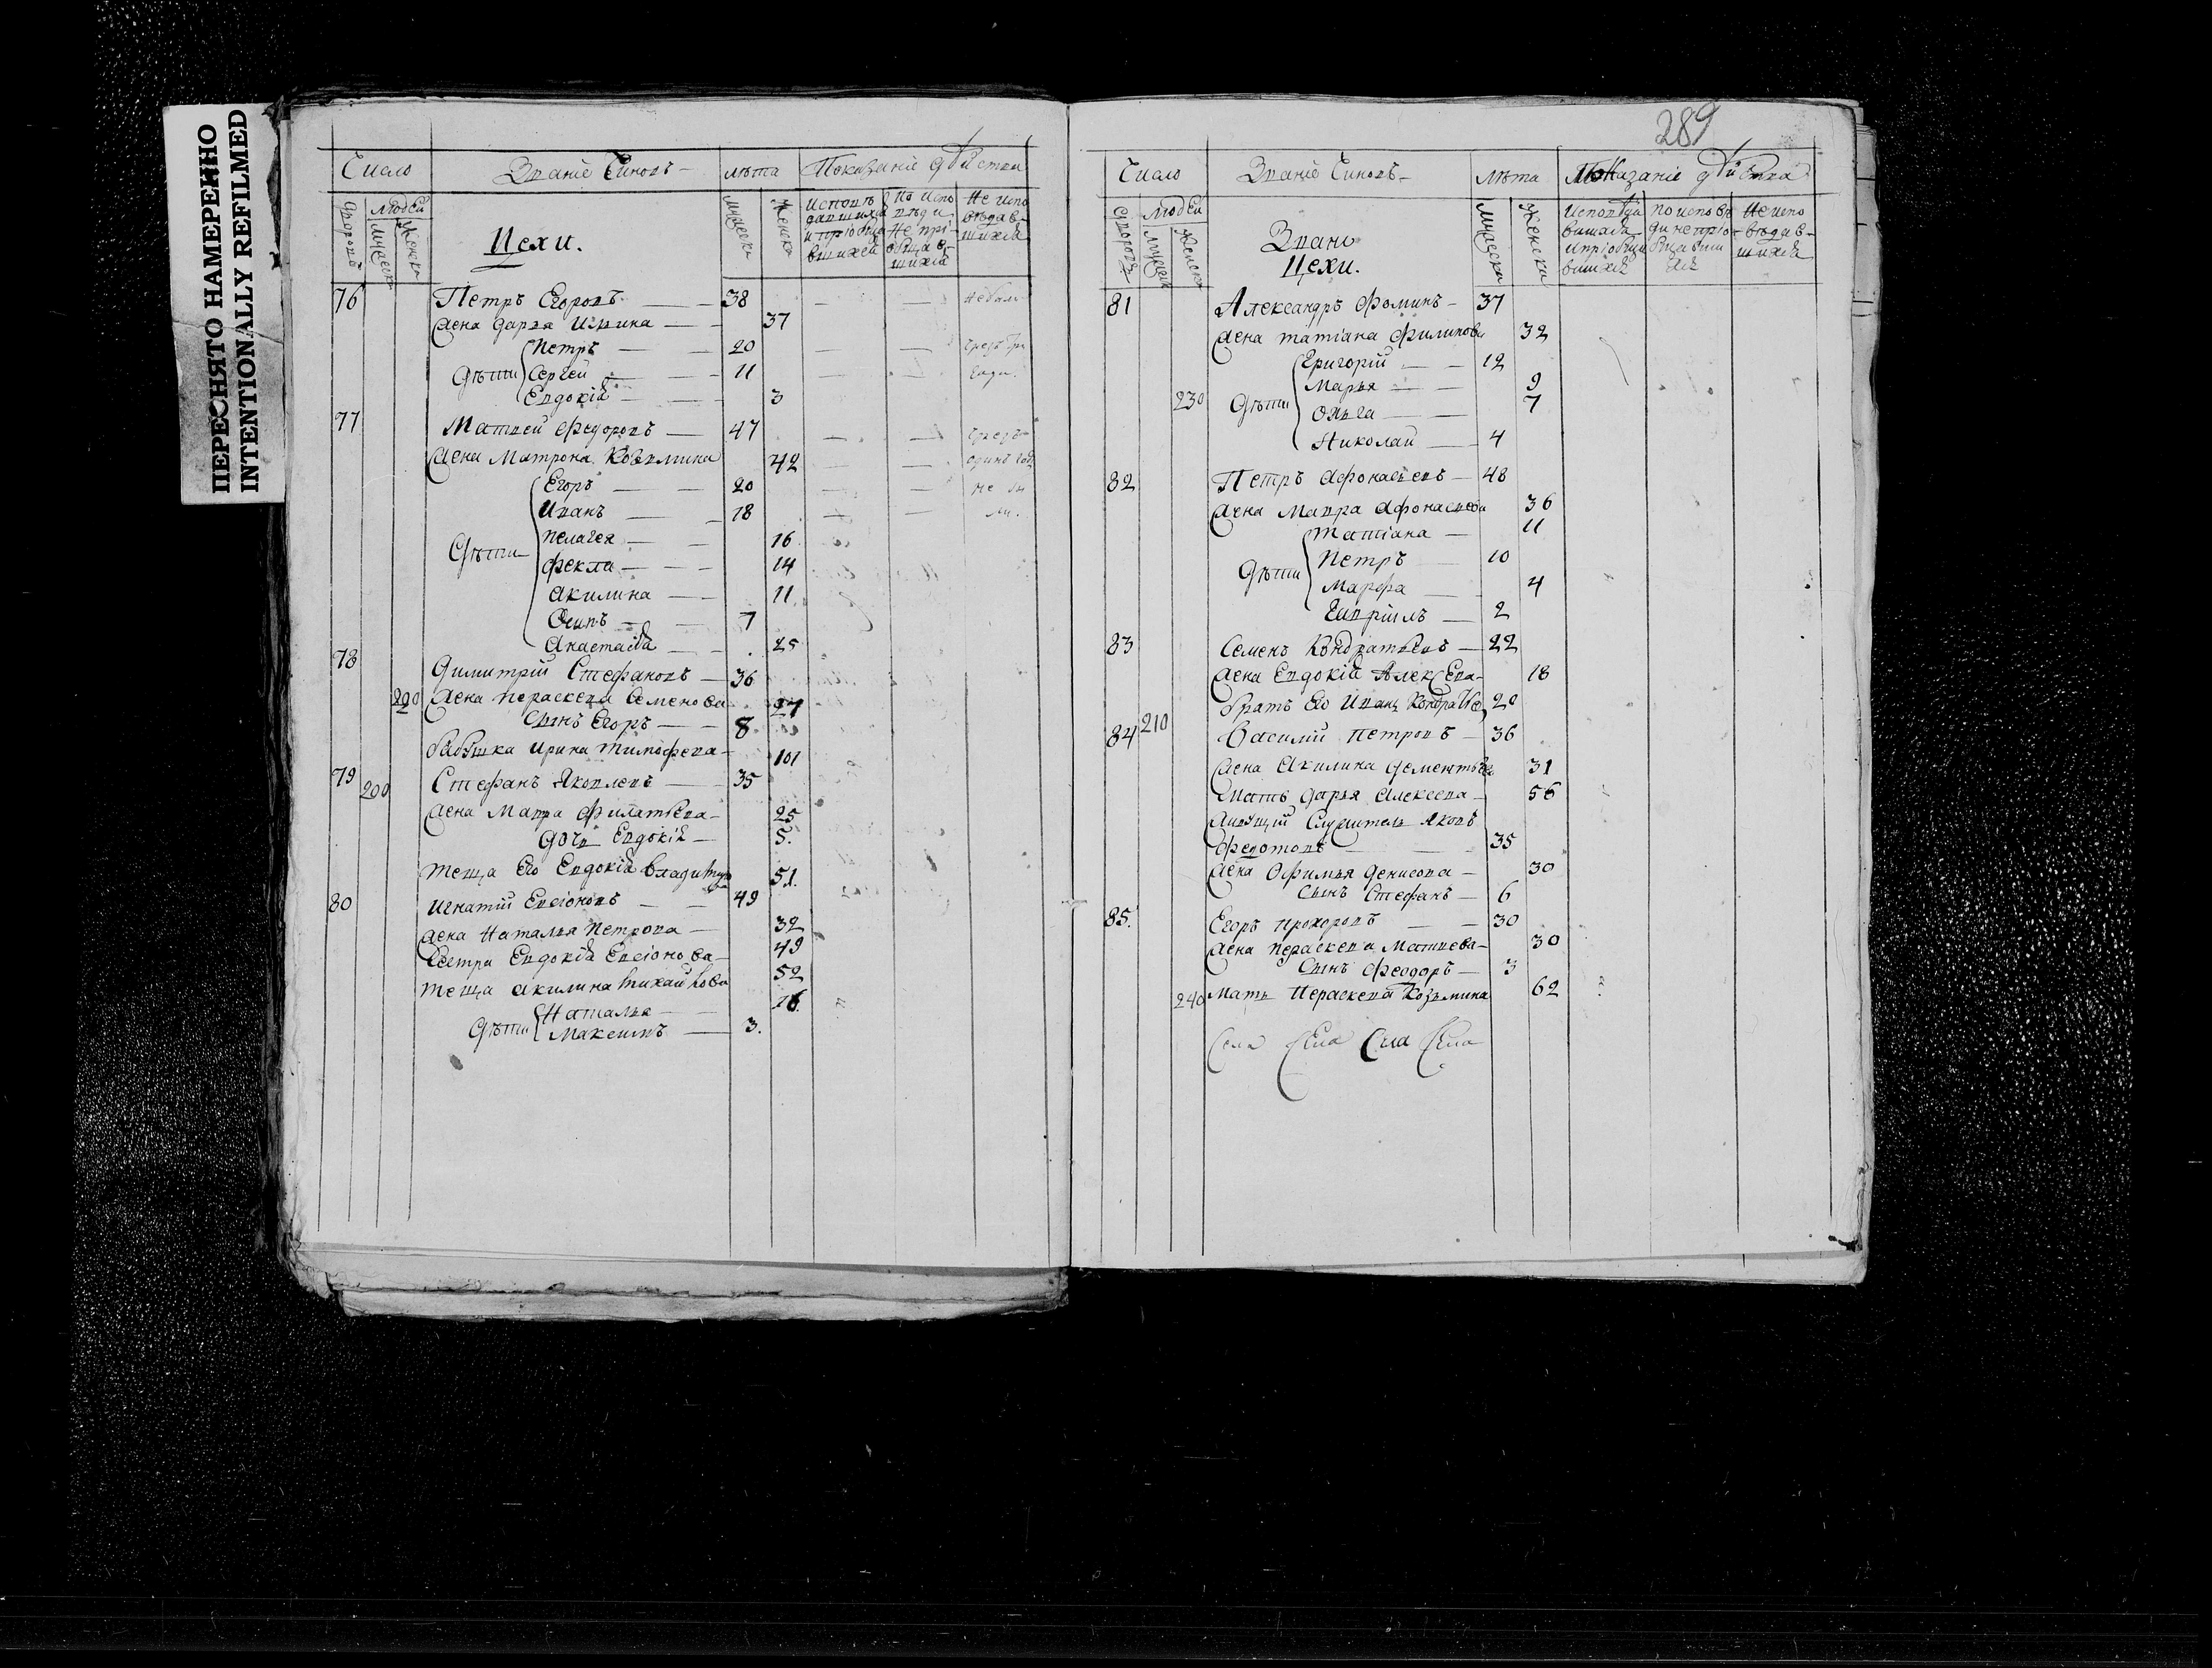 ПЕРЕСНЯТО НАМЕРЕННО
INTENTIONALLY REFILMED
Число Званіе Чиновъ лѣта Показаніе дѣйства
дворовъ людей мужеска женска
Цехи.
мужеска женска
Исповѣдавшихся и пріобщавшихся
По исповѣди не пріобщавшихся
Не исповѣдавшихся
76 Петръ Егоровъ 38
Жена Дарья Ильина 37
Дѣти Петръ 20
Сергей 11
Евдокія 3
77 Матвей Федоровъ 47
Жена Матрона Козьмина 42 одинъ годъ
Дѣти Егоръ 20
Иванъ 18
Пелагея 16
Фекла 14
Акилина 11
Осипъ 7
Анастасія 25
78 Димитрій Стефановъ 36
Жена Пераскева Семенова 27
Сынъ Егоръ 8
бабушка Ирина Тимофева 101
79 200 Стефанъ Яковлевъ 35
Жена Мавра Филатьева 25
Дочь Евдокія 5.
Теща Его Евдокія 51.
80 Игнатій Евсіоновъ 49
Жена Наталья Петрова 32
Сестра Евдокія Евсіонова 49
Теща Акилина Михайлова 52
Дѣти Наталья 16.
Максимъ 3.
289
Число Званіе Чиновъ лѣта Показаніе дѣйства
дворовъ людей мужеска женска
Звані
Цехи.
мужеска женска
Исповѣдавшихся и пріобщавшихся
по исповѣди не пріобщавшихся
Не исповѣдавшихся
81 Александръ Фоминъ 37
Жена Татіана Филипова 32
Дѣти Григорій 12
Марья 9
230 Ольга 7
Николай 4
82 Петръ Афонасьевъ 48
Жена Мавра Афонасьева 36
Дѣти Татіана 11
Петръ 10
Марфа 4
Гавріилъ 2
83 Семенъ Кондратьевъ 22
Жена Евдокія Алексева 18
братъ Его Иванъ 20
84 210 Василій Петровъ 36
Жена Акилина Дементьева 31
Мать Дарья Алексева 56
Живущій Служитель Яковъ
Федотовъ 35
Жена Офимья Денисова 30
Сынъ Стефанъ 6
85. Егоръ Прохоровъ 30
Жена Пераскева Матвева 30
Сынъ Феодоръ 3
240 Мать Пераскева Козьмина 62